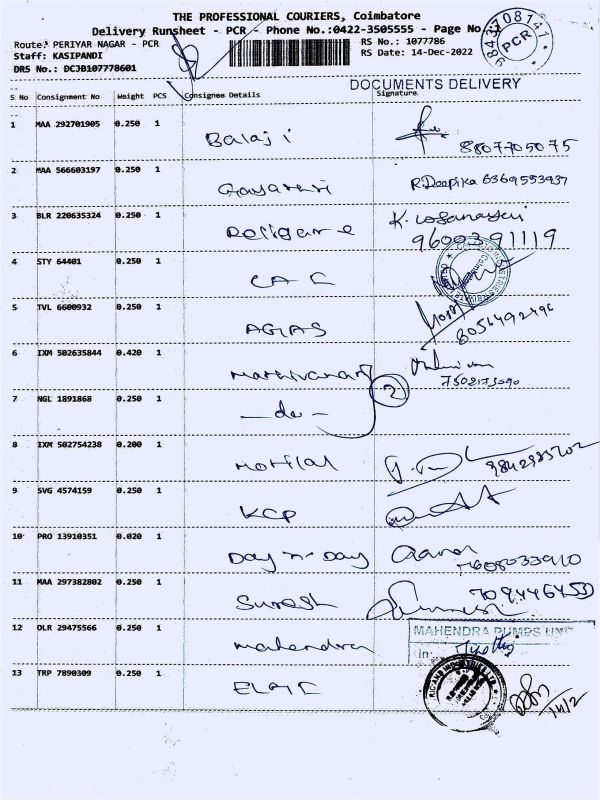 THE PROFESSIONAL COURIERS, Coimbatore
Delivery Runsheet - PCR - Phone No.:0422-3505555 - Page No
Route: PERIYAR NAGAR - PCR
RS No.: 1077786
Staff: KASIPANDI
RS Date: 14-Dec-2022
DRS No.: DCJB107778601
9843708147
PCR
DOCUMENTS DELIVERY
S No Consignment No Weight PCS Consignee Details Signature
1 MAA 292701905 0.250 1 Balaji 8807705075
2 MAA 566603197 0.250 1 Gayathri R.Deepika 6369553937
3 BLR 220635324 0.250 1 Religare K. 9600391119
4 STY 64401 0.250 1
5 TVL 6600932 0.250 1 8056492496
6 IXM 502635844 0.420 1 Mathivanan 7502173090
7 NGL 1891868 0.250 1 - do - 2
8 IXM 502754238 0.200 1 Motilal
9 SVG 4574159 0.250 1 KCP
10 PRO 13910351 0.020 1 Day n Day 7608033910
11 MAA 297382802 0.250 1 Suresh
12 OLR 29475566 0.250 1 Mahendra
MAHENDRA PUMPS
Jyothi
13 TRP 7890309 0.250 1
14/12